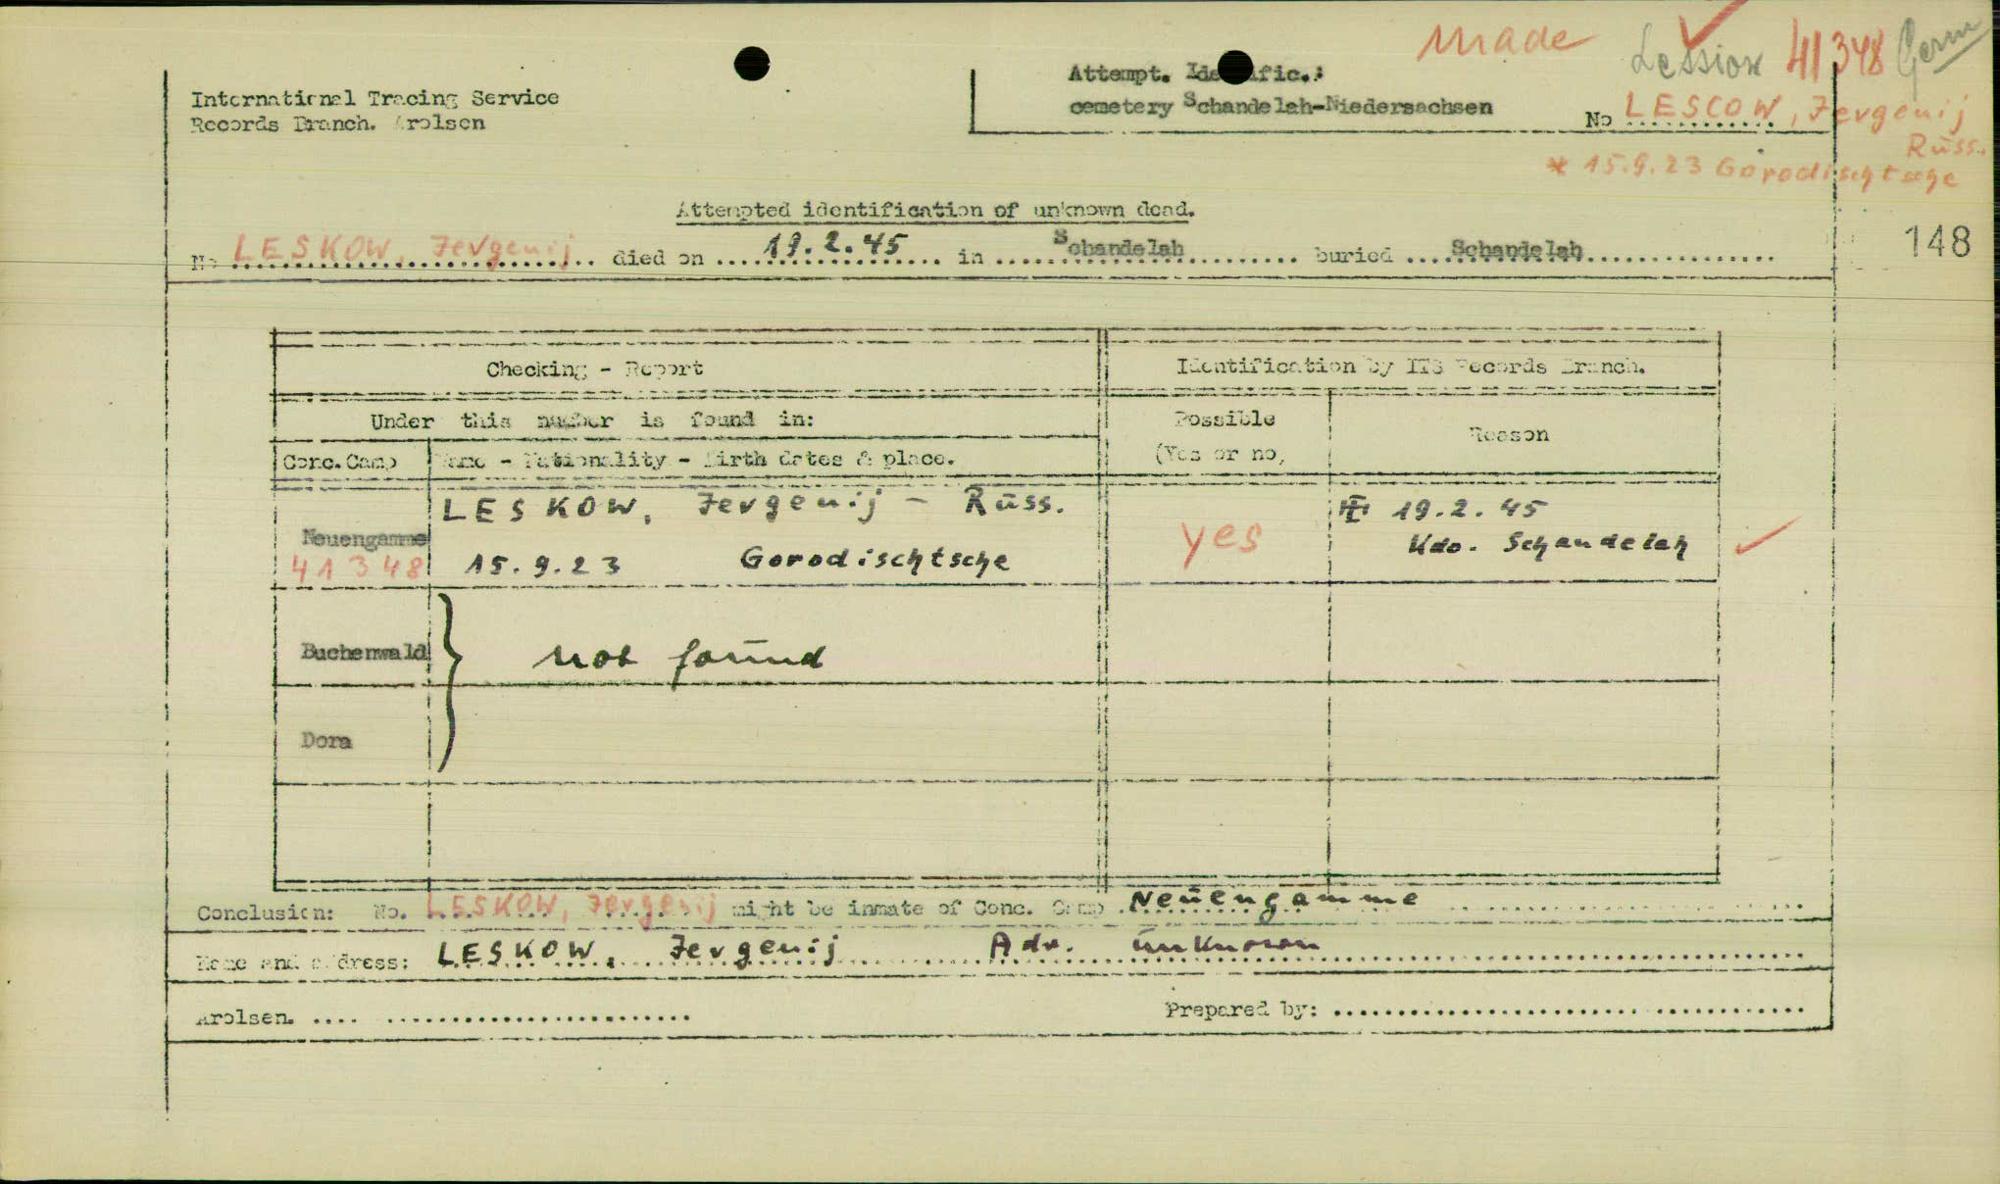 made Lession 41348 Germ
International Tracing Service
Records Branch. Arolsen
Attempt. Identific.:
cemetery Schandelah-Niedersachsen
No LESCOW, Jevgenij
Russ.
* 15.9.23 Gorodischtsche
Attempted identification of unknown dead.
No LESKOW, Jevgenij died on 19.2.45 in Schandelah buried Schandelah
148
Checking - Report
Identification by ITS Records Branch.
Under this number is found in:
Possible
(Yes or no)
Reason
Conc.Camp Name - Nationality - Birth dates & place.
LESKOW, Jevgenij - Russ.
Neuengamme
41348 15.9.23 Gorodischtsche
yes
19.2.45
Kdo. Schandelah
Buchenwald
not found
Dora
Conclusion: No. LESKOW, Jevgenij might be inmate of Conc. Camp Neuengamme
Name and address: LESKOW, Jevgenij Adr. unknown
Arolsen. .... ........................ Prepared by: ........................